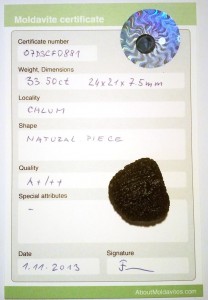 Moldavite certificate
Certificate number
07DSCF0881
Weight, Dimensions
33.50ct 24x21x7.5mm
Locality
CHLUM
Shape
NATURAL PIECE
Quality
A+/++
Special attributes
-
Date
Signature
1.11.2013
AboutMoldavites.com